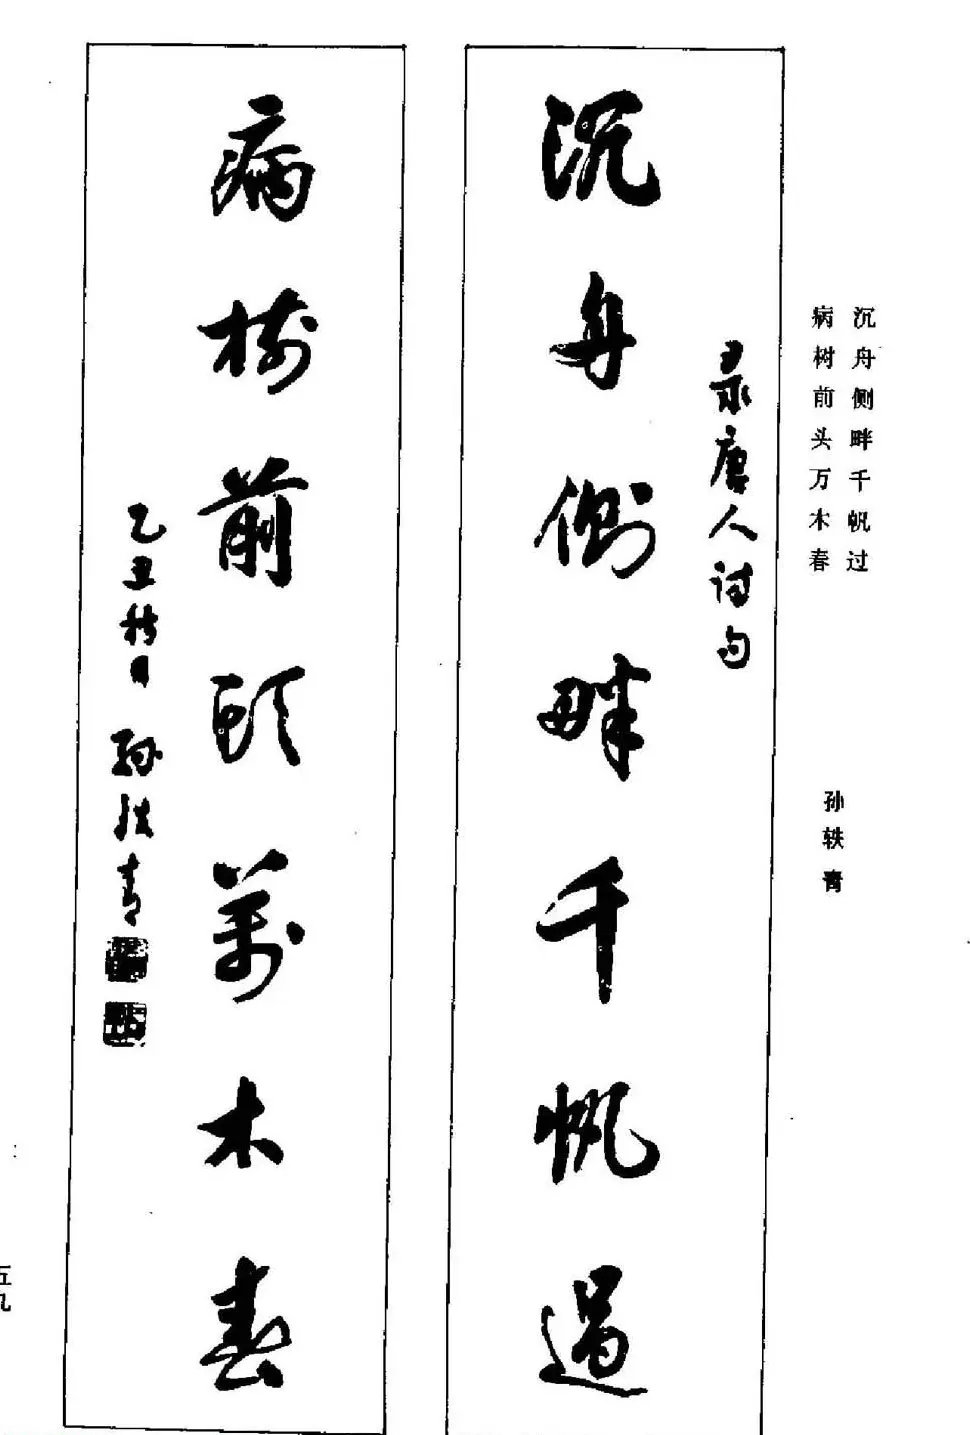 沉舟侧畔千帆过
病树前头万木春
孙轶青
录唐人诗句
沉舟侧畔千帆过
病樹前頭萬木春
乙丑秋日 孙轶青
五九